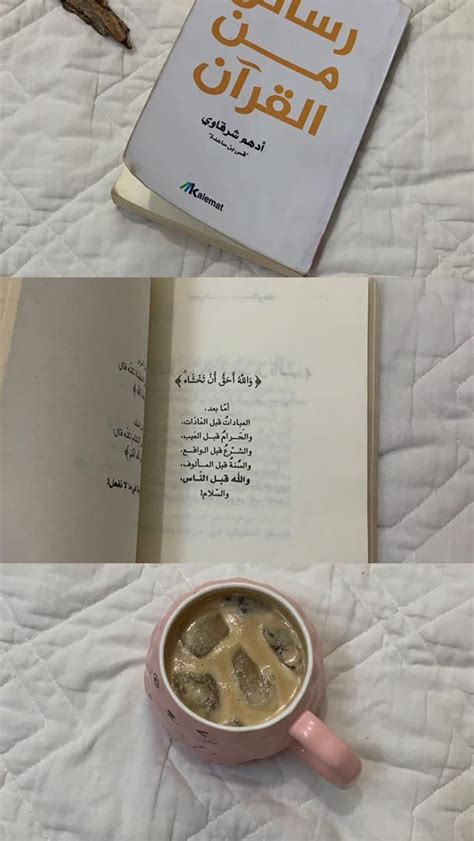 رسائل
من
القرآن
أدهم شرقاوي
"قس بن ساعدة"
Kalemat
﴿ وَاللهُ أَحَقُّ أَنْ تَخْشَاهُ ﴾
أمّا بعد،
العباداتُ قبل العَادَات،
والحَرامُ قبل العيب،
والشّرعُ قبل الواقع،
والسُّنةُ قبل المألوف،
والله قبل النّاس،
والسّلام!